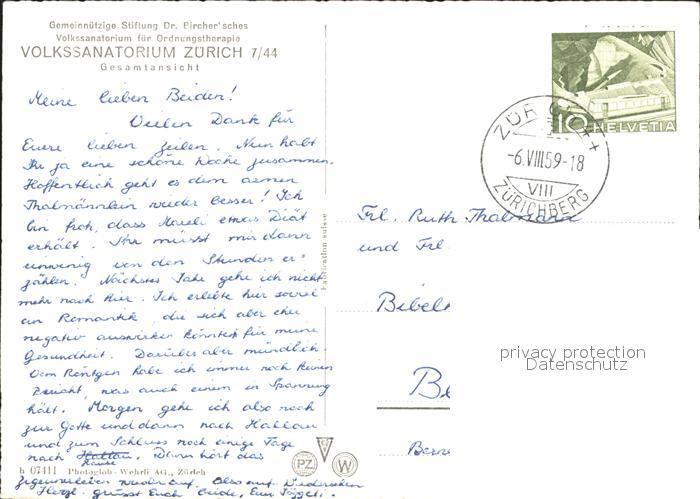 Gemeinnützige Stiftung Dr. Bircher'sches
Volkssanatorium für Ordnungstherapie
VOLKSSANATORIUM ZÜRICH 7/44
Gesamtansicht
Meine lieben Beiden!
Vielen Dank für
Eure lieben Zeilen. Nun habt
Ihr ja eine schöne Woche zusammen.
Hoffentlich geht es dem armen
Thalmännlein wieder besser! Ich
bin froh, dass Mausli etwas Diät
erhält. Ihr müsst mir dann
einwenig von den Stunden er-
zählen. Nächstes Jahr gehe ich nicht
mehr nach hier. Ich erlebte hier soviel
an Romantik, die sich aber eher
negativ auswirken könnten für meine
Gesundheit. Darüber aber mündlich.
Vom Röntgen habe ich immer noch keinen
Bericht, was auch einem in Spannung
hält. Morgen gehe ich also noch
zur Gotte und dann nach Hallau
und zum Schluss noch einige Tage
nach Hallau. Dann hört das
Hause
Zigeunerleben wieder auf. Also auf Wiedersehen
Herzl. grüsst Euch beide, Eure
h 07411 Photoglob-Wehrli AG., Zürich
Fabrication suisse
PZ
W
10 HELVETIA
ZÜRICH
-6.VIII.59-18
VIII
ZÜRICHBERG
Frl. Ruth Thalmann
und Frl.
Bibel
privacy protection
Datenschutz
Be
Bern